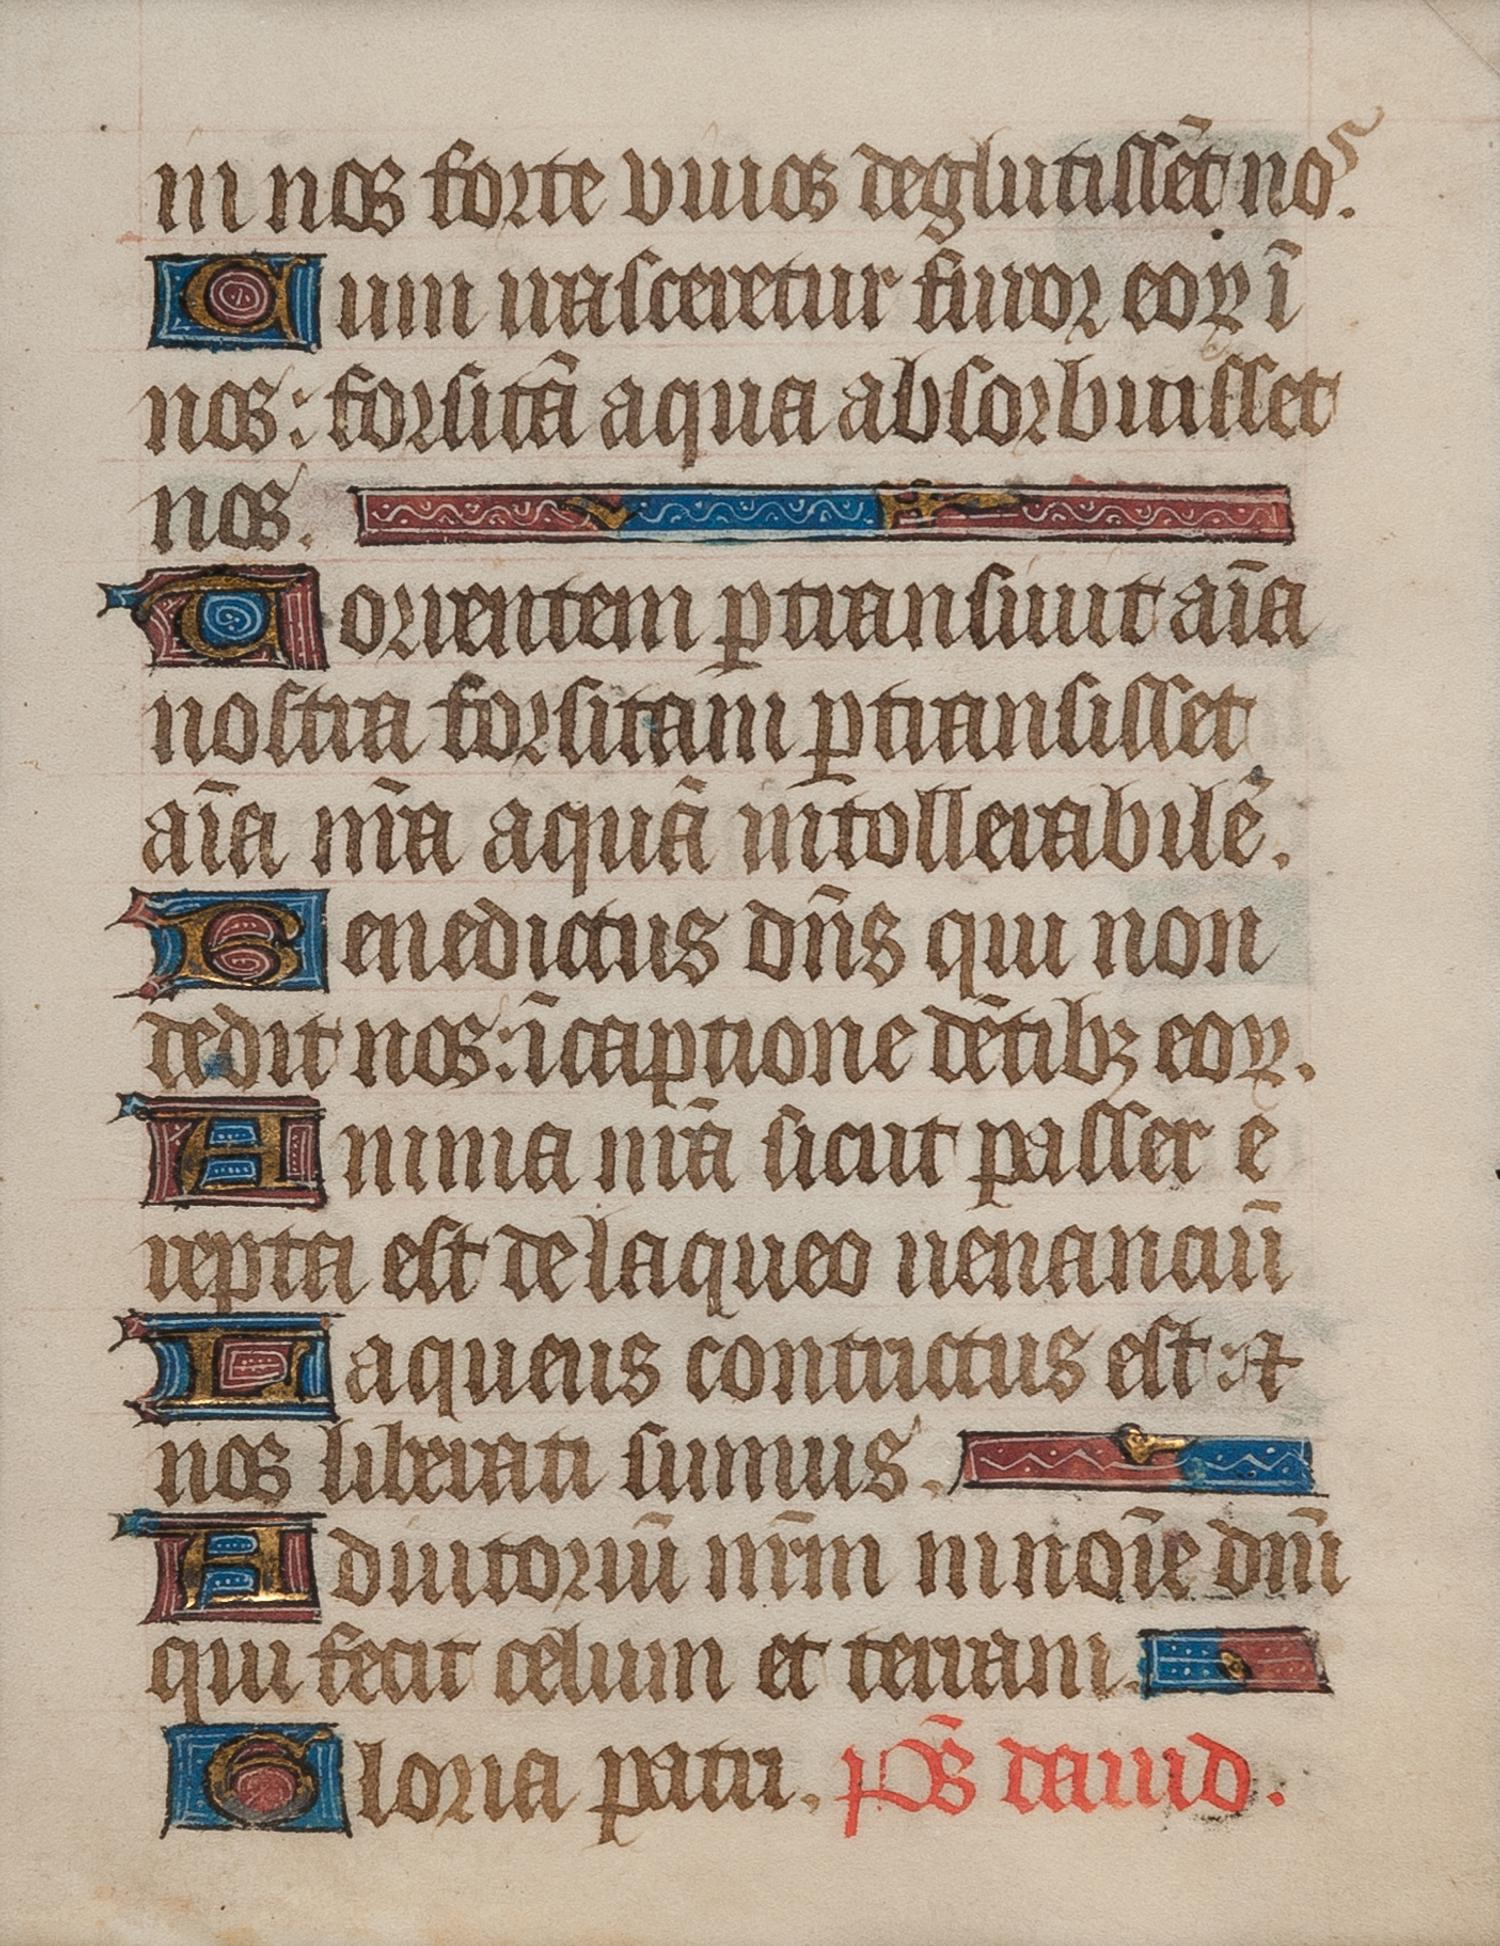 in nos forte viuos deglutissēt nos.
Cum irasceretur furor eoꝝ ī
nos: forsitā aqua absorbuisset
nos.
Torrentem ꝑtransiuit aīa
nostra forsitam ꝑtransisset
aīa nr̄a aquā intollerabilē.
Benedictus dn̄s qui non
dedit nos: ī captione dētibꝫ eoꝝ.
Anima nr̄a sicut passer e
repta est de laqueo uenanciū
Laqueus contrictus est: ⁊
nos liberati sumus.
Adiutoriū nr̄m in noīe dn̄i
qui fecit celum et terram.
Gloria patri. p̄s dauid.